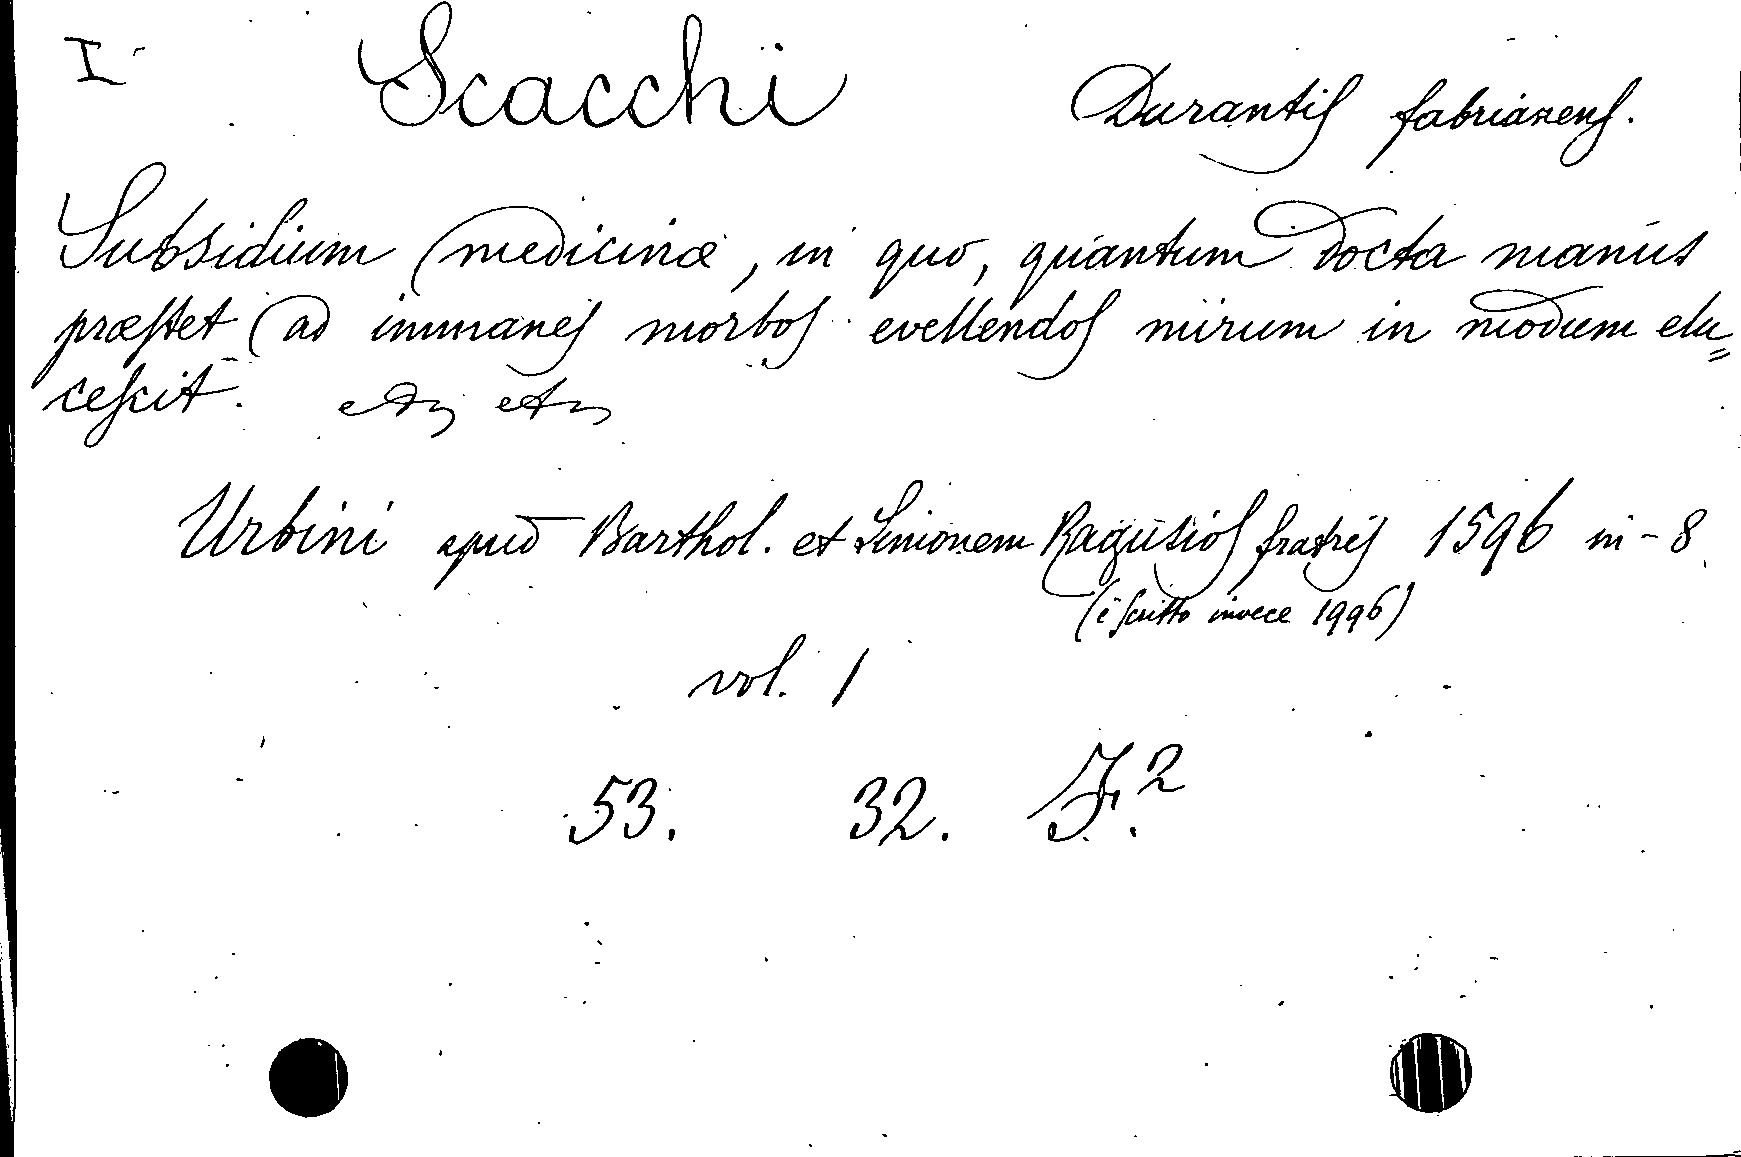 I Scacchi Durantis fabrianens.
Subsidium medicinæ, in quo, quantum docta manus
præstet ad immanes morbos evellendos mirum in modum elu=
cescit. etc etc
Urbini apud Barthol. et Simonem Ragusios fratres 1596 in-8
(è scritto invece 1996)
vol. 1
53. 32. F.2